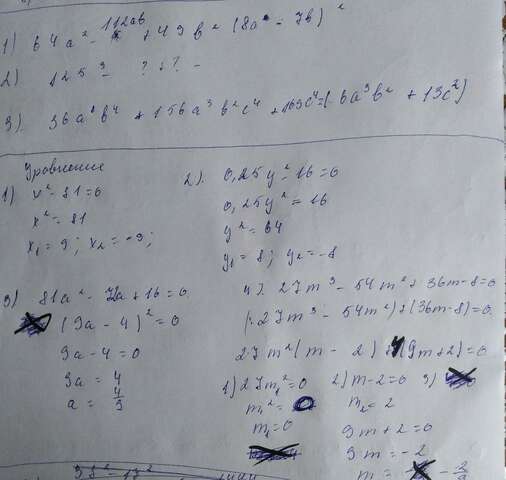 1) 64a² - 112ab + 49b² (8a - 7b)²
2) 125³ - ? + ? -
3). 36a⁶b⁴ + 156a³b²c⁴ + 169c⁴ = (6a³b² + 13c²)
Уравнение
1) x² - 81 = 0
x² = 81
x₁ = 9; x₂ = -9;
2). 0,25y² - 16 = 0
0,25y² = 16
y² = 64
y₁ = 8; y₂ = -8
3) 81a² - 72a + 16 = 0
(9a - 4)² = 0
9a - 4 = 0
9a = 4
a = 4/9
4). 27m³ - 54m² + 36m - 8 = 0
(27m³ - 54m²) + (36m - 8) = 0
27m²(m - 2) + 4(9m + 2) = 0
1) 27m₁² = 0 2) m - 2 = 0 3)
m₁² = 0 m₂ = 2
m₁ = 0 9m + 2 = 0
9m = -2
m = - 2/9